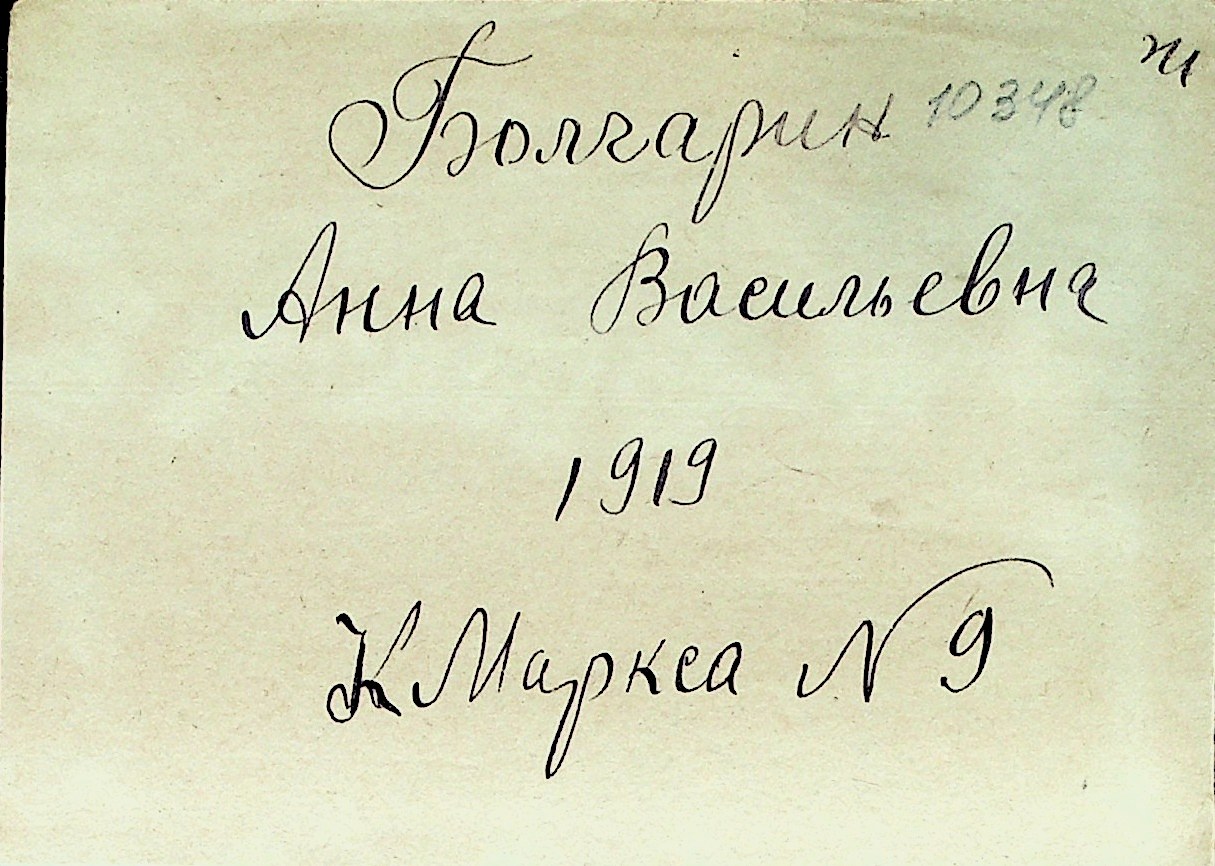 Болгарин 10348 ж
Анна Васильевна
1919
К Маркса N 9